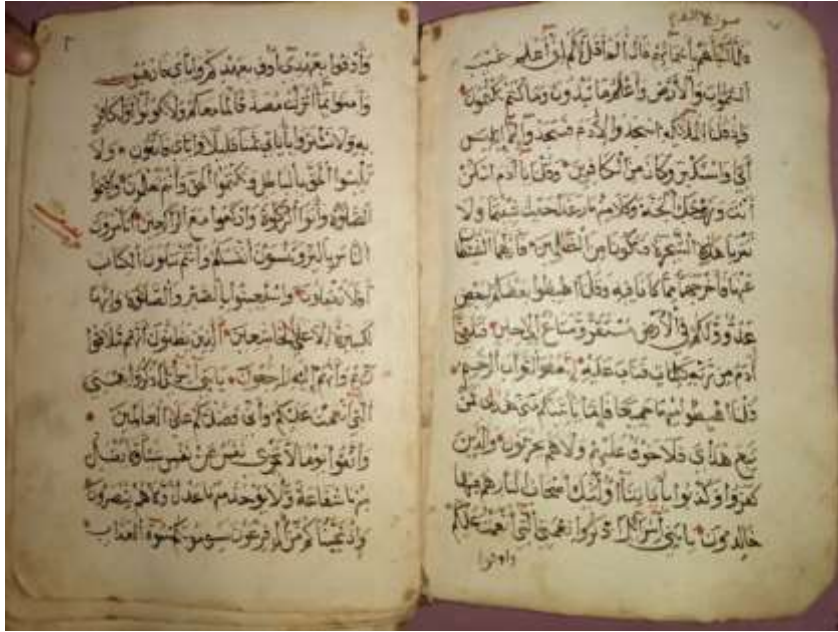 فَلَمَّا أَنْبَأَهُمْ بِأَسْمَائِهِمْ قَالَ أَلَمْ أَقُلْ لَكُمْ إِنِّي أَعْلَمُ غَيْبَ
السَّمٰوَاتِ وَالْأَرْضِ وَأَعْلَمُ مَا تُبْدُونَ وَمَا كُنْتُمْ تَكْتُمُونَ
وَإِذْ قُلْنَا لِلْمَلٰئِكَةِ اسْجُدُوا لِآدَمَ فَسَجَدُوا إِلَّا إِبْلِيسَ
أَبَى وَاسْتَكْبَرَ وَكَانَ مِنَ الْكَافِرِينَ وَقُلْنَا يَا آدَمُ اسْكُنْ
أَنْتَ وَزَوْجُكَ الْجَنَّةَ وَكُلَا مِنْهَا رَغَدًا حَيْثُ شِئْتُمَا وَلَا
تَقْرَبَا هٰذِهِ الشَّجَرَةَ فَتَكُونَا مِنَ الظَّالِمِينَ فَأَزَلَّهُمَا الشَّيْطَانُ
عَنْهَا فَأَخْرَجَهُمَا مِمَّا كَانَا فِيهِ وَقُلْنَا اهْبِطُوا بَعْضُكُمْ لِبَعْضٍ
عَدُوٌّ وَلَكُمْ فِي الْأَرْضِ مُسْتَقَرٌّ وَمَتَاعٌ إِلَى حِينٍ فَتَلَقَّى
آدَمُ مِنْ رَبِّهِ كَلِمَاتٍ فَتَابَ عَلَيْهِ إِنَّهُ هُوَ التَّوَّابُ الرَّحِيمُ
قُلْنَا اهْبِطُوا مِنْهَا جَمِيعًا فَإِمَّا يَأْتِيَنَّكُمْ مِنِّي هُدًى فَمَنْ
تَبِعَ هُدَايَ فَلَا خَوْفٌ عَلَيْهِمْ وَلَا هُمْ يَحْزَنُونَ وَالَّذِينَ
كَفَرُوا وَكَذَّبُوا بِآيَاتِنَا أُولٰئِكَ أَصْحَابُ النَّارِ هُمْ فِيهَا
خَالِدُونَ يَا بَنِي إِسْرَائِيلَ اذْكُرُوا نِعْمَتِيَ الَّتِي أَنْعَمْتُ عَلَيْكُمْ
واوفوا
وَأَوْفُوا بِعَهْدِي أُوفِ بِعَهْدِكُمْ وَإِيَّايَ فَارْهَبُونِ
وَآمِنُوا بِمَا أَنْزَلْتُ مُصَدِّقًا لِمَا مَعَكُمْ وَلَا تَكُونُوا أَوَّلَ كَافِرٍ
بِهِ وَلَا تَشْتَرُوا بِآيَاتِي ثَمَنًا قَلِيلًا وَإِيَّايَ فَاتَّقُونِ وَلَا
تَلْبِسُوا الْحَقَّ بِالْبَاطِلِ وَتَكْتُمُوا الْحَقَّ وَأَنْتُمْ تَعْلَمُونَ وَأَقِيمُوا
الصَّلٰوةَ وَآتُوا الزَّكٰوةَ وَارْكَعُوا مَعَ الرَّاكِعِينَ أَتَأْمُرُونَ
النَّاسَ بِالْبِرِّ وَتَنْسَوْنَ أَنْفُسَكُمْ وَأَنْتُمْ تَتْلُونَ الْكِتَابَ
أَفَلَا تَعْقِلُونَ وَاسْتَعِينُوا بِالصَّبْرِ وَالصَّلٰوةِ وَإِنَّهَا
لَكَبِيرَةٌ إِلَّا عَلَى الْخَاشِعِينَ الَّذِينَ يَظُنُّونَ أَنَّهُمْ مُلَاقُوا
رَبِّهِمْ وَأَنَّهُمْ إِلَيْهِ رَاجِعُونَ يَا بَنِي إِسْرَائِيلَ اذْكُرُوا نِعْمَتِيَ
الَّتِي أَنْعَمْتُ عَلَيْكُمْ وَأَنِّي فَضَّلْتُكُمْ عَلَى الْعَالَمِينَ
وَاتَّقُوا يَوْمًا لَا تَجْزِي نَفْسٌ عَنْ نَفْسٍ شَيْئًا وَلَا يُقْبَلُ
مِنْهَا شَفَاعَةٌ وَلَا يُؤْخَذُ مِنْهَا عَدْلٌ وَلَا هُمْ يُنْصَرُونَ
وَإِذْ نَجَّيْنَاكُمْ مِنْ آلِ فِرْعَوْنَ يَسُومُونَكُمْ سُوءَ الْعَذَابِ